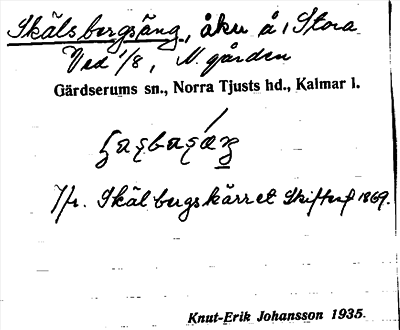 Skälsbergsäng, åker å, Stora
Ved 1/8, N. gården
Gärdserums sn., Norra Tjusts hd., Kalmar l.
Jfr. Skälbergskärret Skifte 1869.
Knut-Erik Johansson 1935.